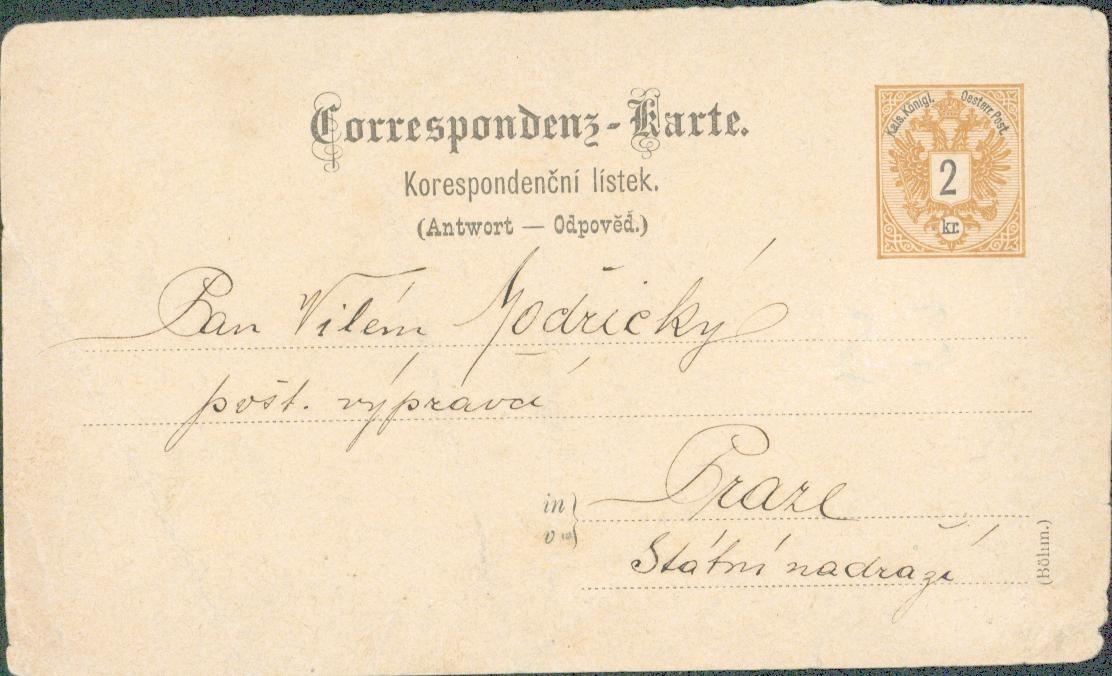 Correspondenz-Karte.
Korespondenční lístek.
(Antwort — Odpověď.)
Kais. Königl. Oesterr. Post.
2
kr.
Pan Vilém Modřický
pošt. výpravčí
in
v
Praze
Státní nadraží
(Böhm.)